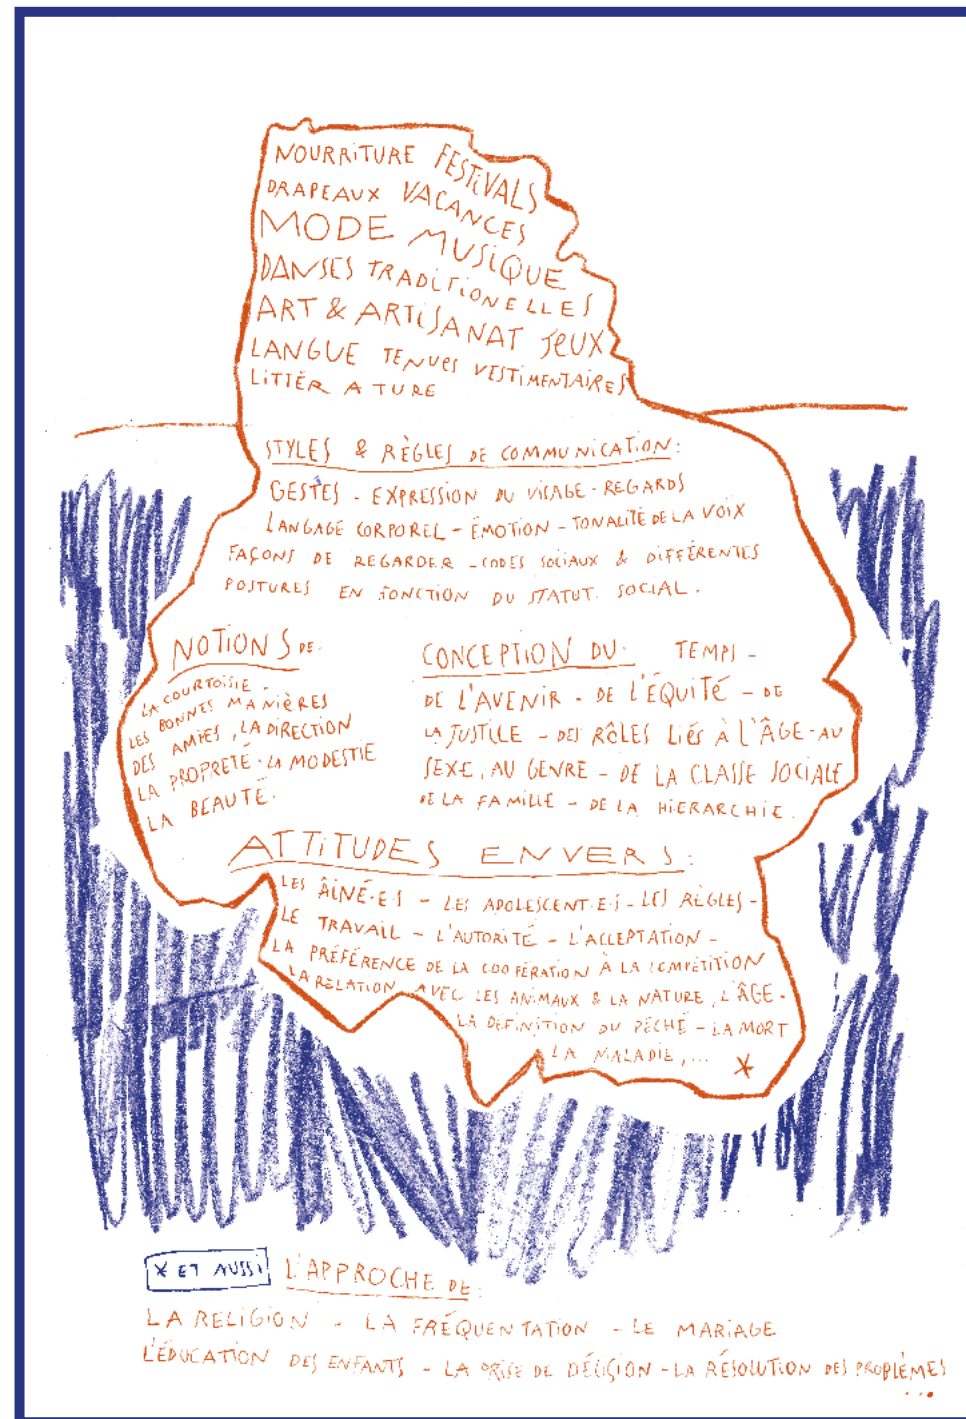 NOURRITURE FESTIVALS
DRAPEAUX VACANCES
MODE MUSIQUE
DANSES TRADITIONELLES
ART & ARTISANAT JEUX
LANGUE TENUES VESTIMENTAIRES
LITTÉRATURE
STYLES & RÈGLES DE COMMUNICATION:
GESTES - EXPRESSION DU VISAGE - REGARDS
LANGAGE CORPOREL - ÉMOTION - TONALITÉ DE LA VOIX
FAÇONS DE REGARDER - CODES SOCIAUX & DIFFÉRENTES
POSTURES EN FONCTION DU STATUT. SOCIAL.
NOTIONS DE:
LA COURTOISIE -
LES BONNES MANIÈRES
DES AMIES, LA DIRECTION
LA PROPRETÉ - LA MODESTIE
LA BEAUTÉ.
CONCEPTION DU: TEMPS -
DE L'AVENIR - DE L'ÉQUITÉ - DE
LA JUSTICE - DES RÔLES LIÉS À L'ÂGE - AU
SEXE, AU GENRE - DE LA CLASSE SOCIALE
DE LA FAMILLE - DE LA HIERARCHIE.
ATTITUDES ENVERS:
LES ÂINÉ·E·S - LES ADOLESCENT·E·S - LES RÈGLES -
LE TRAVAIL - L'AUTORITÉ - L'ACCEPTATION -
LA PRÉFÉRENCE DE LA COOPÉRATION À LA COMPÉTITION
LA RELATION AVEC LES ANIMAUX & LA NATURE, L'ÂGE -
LA DÉFINITION DU PÉCHÉ - LA MORT
LA MALADIE,... *
* ET AUSSI L'APPROCHE DE:
LA RELIGION - LA FRÉQUENTATION - LE MARIAGE
L'ÉDUCATION DES ENFANTS - LA PRISE DE DÉCISION - LA RÉSOLUTION DES PROBLÈMES
...